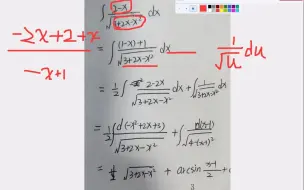 ∫ (2-x)/√(3+2x-x²) dx
-2x+2+x
= ∫ ((1-x)+1)/√(3+2x-x²) dx
1/√u du
-x+1
= 1/2 ∫ (2-2x)/√(3+2x-x²) dx + ∫ 1/√(3+2x-x²) dx
= 1/2 ∫ d(-x²+2x+3)/√(3+2x-x²) + ∫ d(x-1)/√(4-(x-1)²)
√(3+2x-x²) + arcsin (x-1)/2 +